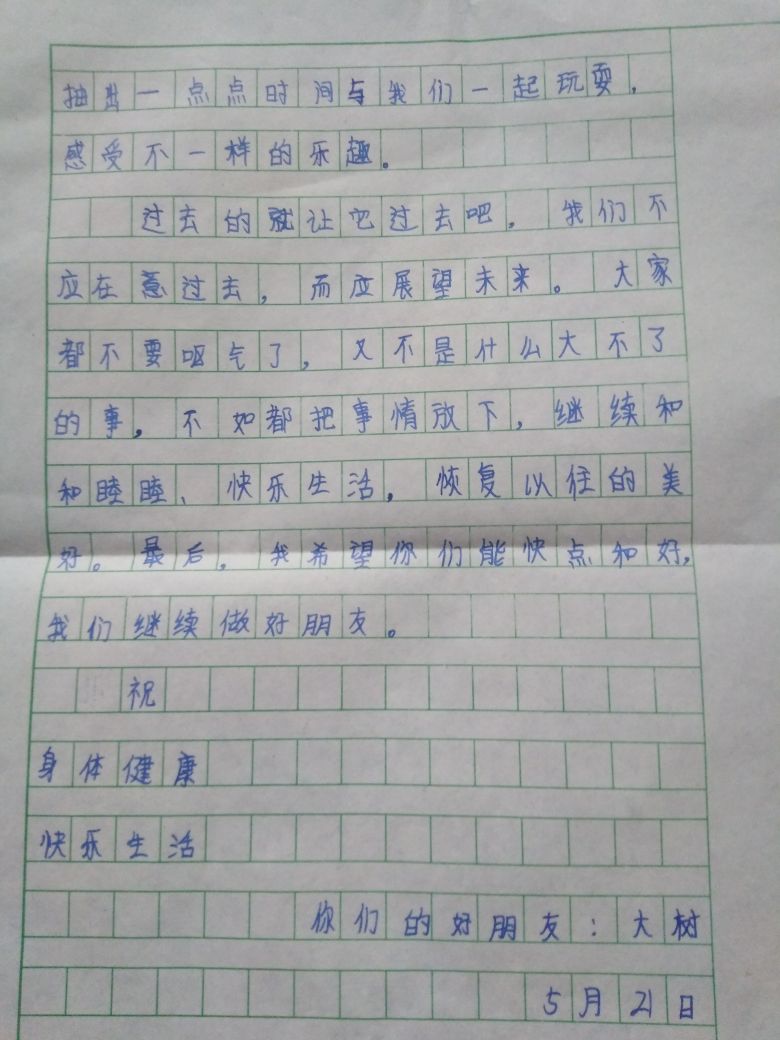 抽出一点点时间与我们一起玩耍，
感受不一样的乐趣。
过去的就让它过去吧，我们不
应在意过去，而应展望未来。大家
都不要呕气了，又不是什么大不了
的事，不如都把事情放下，继续和
和睦睦、快乐生活，恢复以往的美
好。最后，我希望你们能快点和好，
我们继续做好朋友。
祝
身体健康
快乐生活
你们的好朋友：大树
5月21日